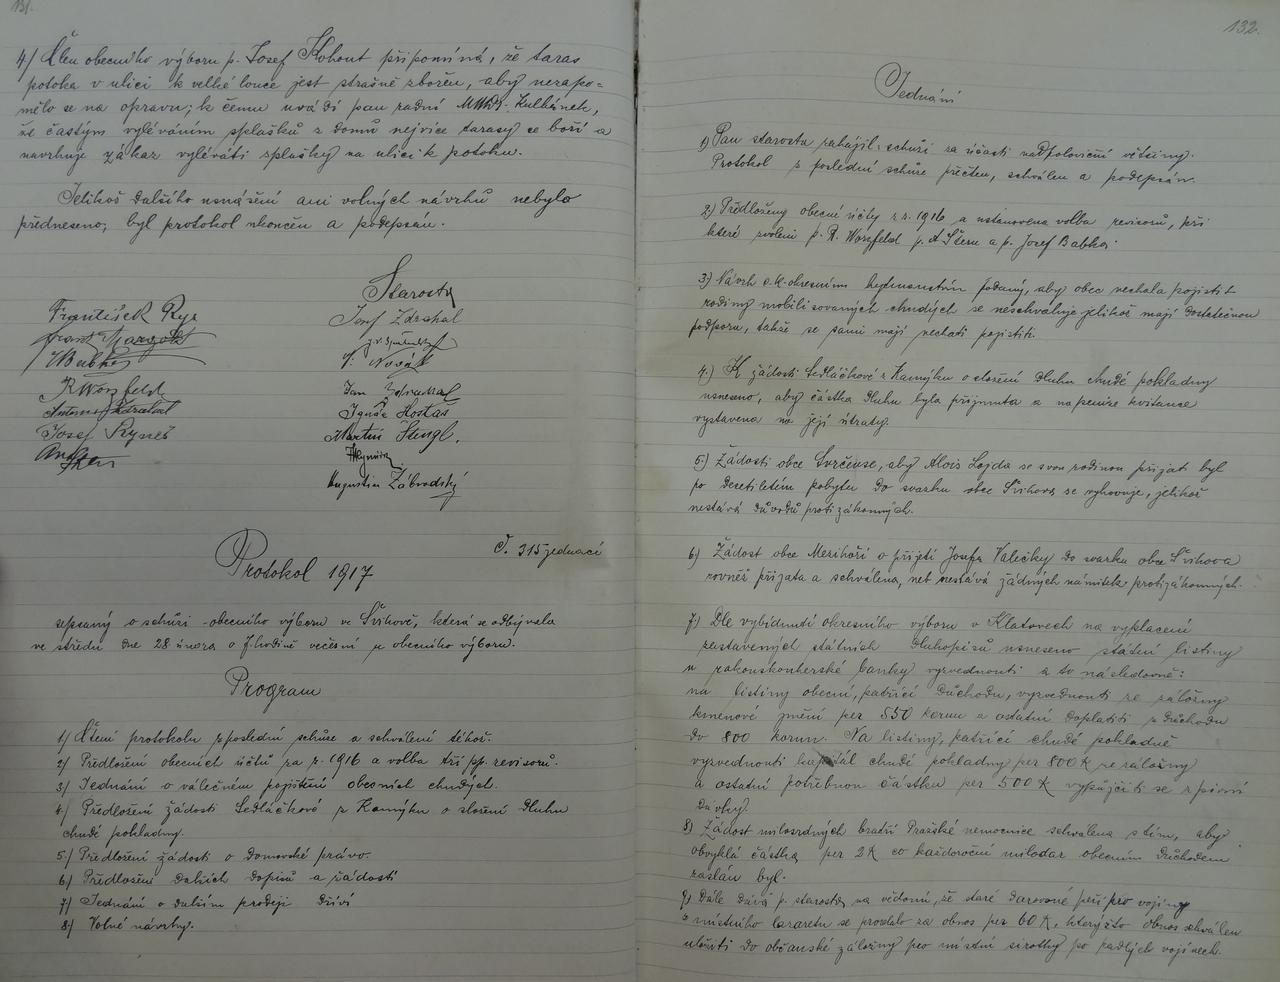 131.
4) Člen obecního výboru p. Josef Kohout připomíná, že taras
potoka v ulici k velké louce jest strašně zbořen, aby nezapo=
mělo se na opravu; k čemu uvádí pan radní Kulhánek,
že častým vyléváním splašků z domů nejvíce tarasy se boří a
navrhuje zákaz vylévati splašky na ulici k potoku.
Jelikož dalšího usnášení ani volných návrhů nebylo
předneseno, byl protokol skončen a podepsán.
Starosta
František Ryz
Josef Zdrahal
Frant.
V. Novák
R Worzfeld
Jan Zdrahal
Antonín Zdrahal
Ignác Hostaš
Josef Ryneš
Martin Stengl.
Augustin Zábrodský
Č. 315 jednací
Protokol 1917
sepsaný o schůzi obecního výboru ve Švihově, která se odbývala
ve středu dne 28 února o 7 hodině večerní u obecního výboru.
Program
1) Čtení protokolu z poslední schůze a schválení téhož.
2) Předložení obecních účtů za r. 1916 a volba tří pp. revisorů.
3) Jednání o válečném pojištění obecních chudých.
4) Předložení žádosti Sedláčkové z Kamýku o složení dluhu
chudé pokladny.
5) Předložení žádosti o domovské právo.
6) Předložení dalších dopisů a žádostí
7) Jednání o dalším prodeji dříví
8) Volné návrhy.
132.
Jednání
1) Pan starosta zahájil schůzi za účasti nadpoloviční většiny.
Protokol z poslední schůze přečten, schválen a podepsán.
2) Předloženy obecní účty z r. 1916 a ustanovena volba revisorů, při
které zvoleni p. R. Worzfeld p. A Štern a p. Josef Babka.
3) Návrh c.k. okresním hejtmanstvím podaný, aby obec nechala pojistit
rodiny mobilisovaných chudých se neschvaluje jelikož mají dostatečnou
podporu, takže se sami mají nechati pojistiti.
4.) K žádosti Sedláčkové z Kamýku o složení dluhu chudé pokladny
usneseno, aby částka dluhu byla přijmuta a na peníze kvitance
vystavena na její útraty.
5) Žádosti obce Svrčevse, aby Alois Lojda se svou rodinou přijati byl
po desetiletém pobytu do svazku obce Švihova se vyhovuje, jelikož
nestává důvodů protizákonných.
6) Žádost obce Mezihoří o přijetí Josefa Valečky do svazku obce Švihova
rovněž přijata a schválena, neb nestává žádných námitek protizákonných.
7) Dle vybídnutí okresního výboru v Klatovech na vyplacení
zastavených státních dluhopisů usneseno státní listiny
u rakouskouherské banky vyzvednouti a to následovně:
na listiny obecní, patřící důchodu, vyzvednouti ze záložny
kmenové jmění per 550 korun a ostatní doplatiti z důchodu
do 800 korun. Na listiny, patřící chudé pokladně
vyzvednouti kapitál chudé pokladny per 800 K ze záložny
a ostatní potřebnou částku per 500 K vypůjčiti se z pivní
dávky.
8) Žádost milosrdných bratří Pražské nemocnice schválena s tím, aby
obvyklá částka per 2 K co každoroční milodar obecním důchodem
zaslán byl.
9) Dále dává p. starosta na vědomí, že staré darované peří pro vojíny
z místního lazaretu se prodalo za obnos per 60 K, kterýžto obnos schválen
uložiti do občanské záložny pro místní sirotky po padlých vojínech.